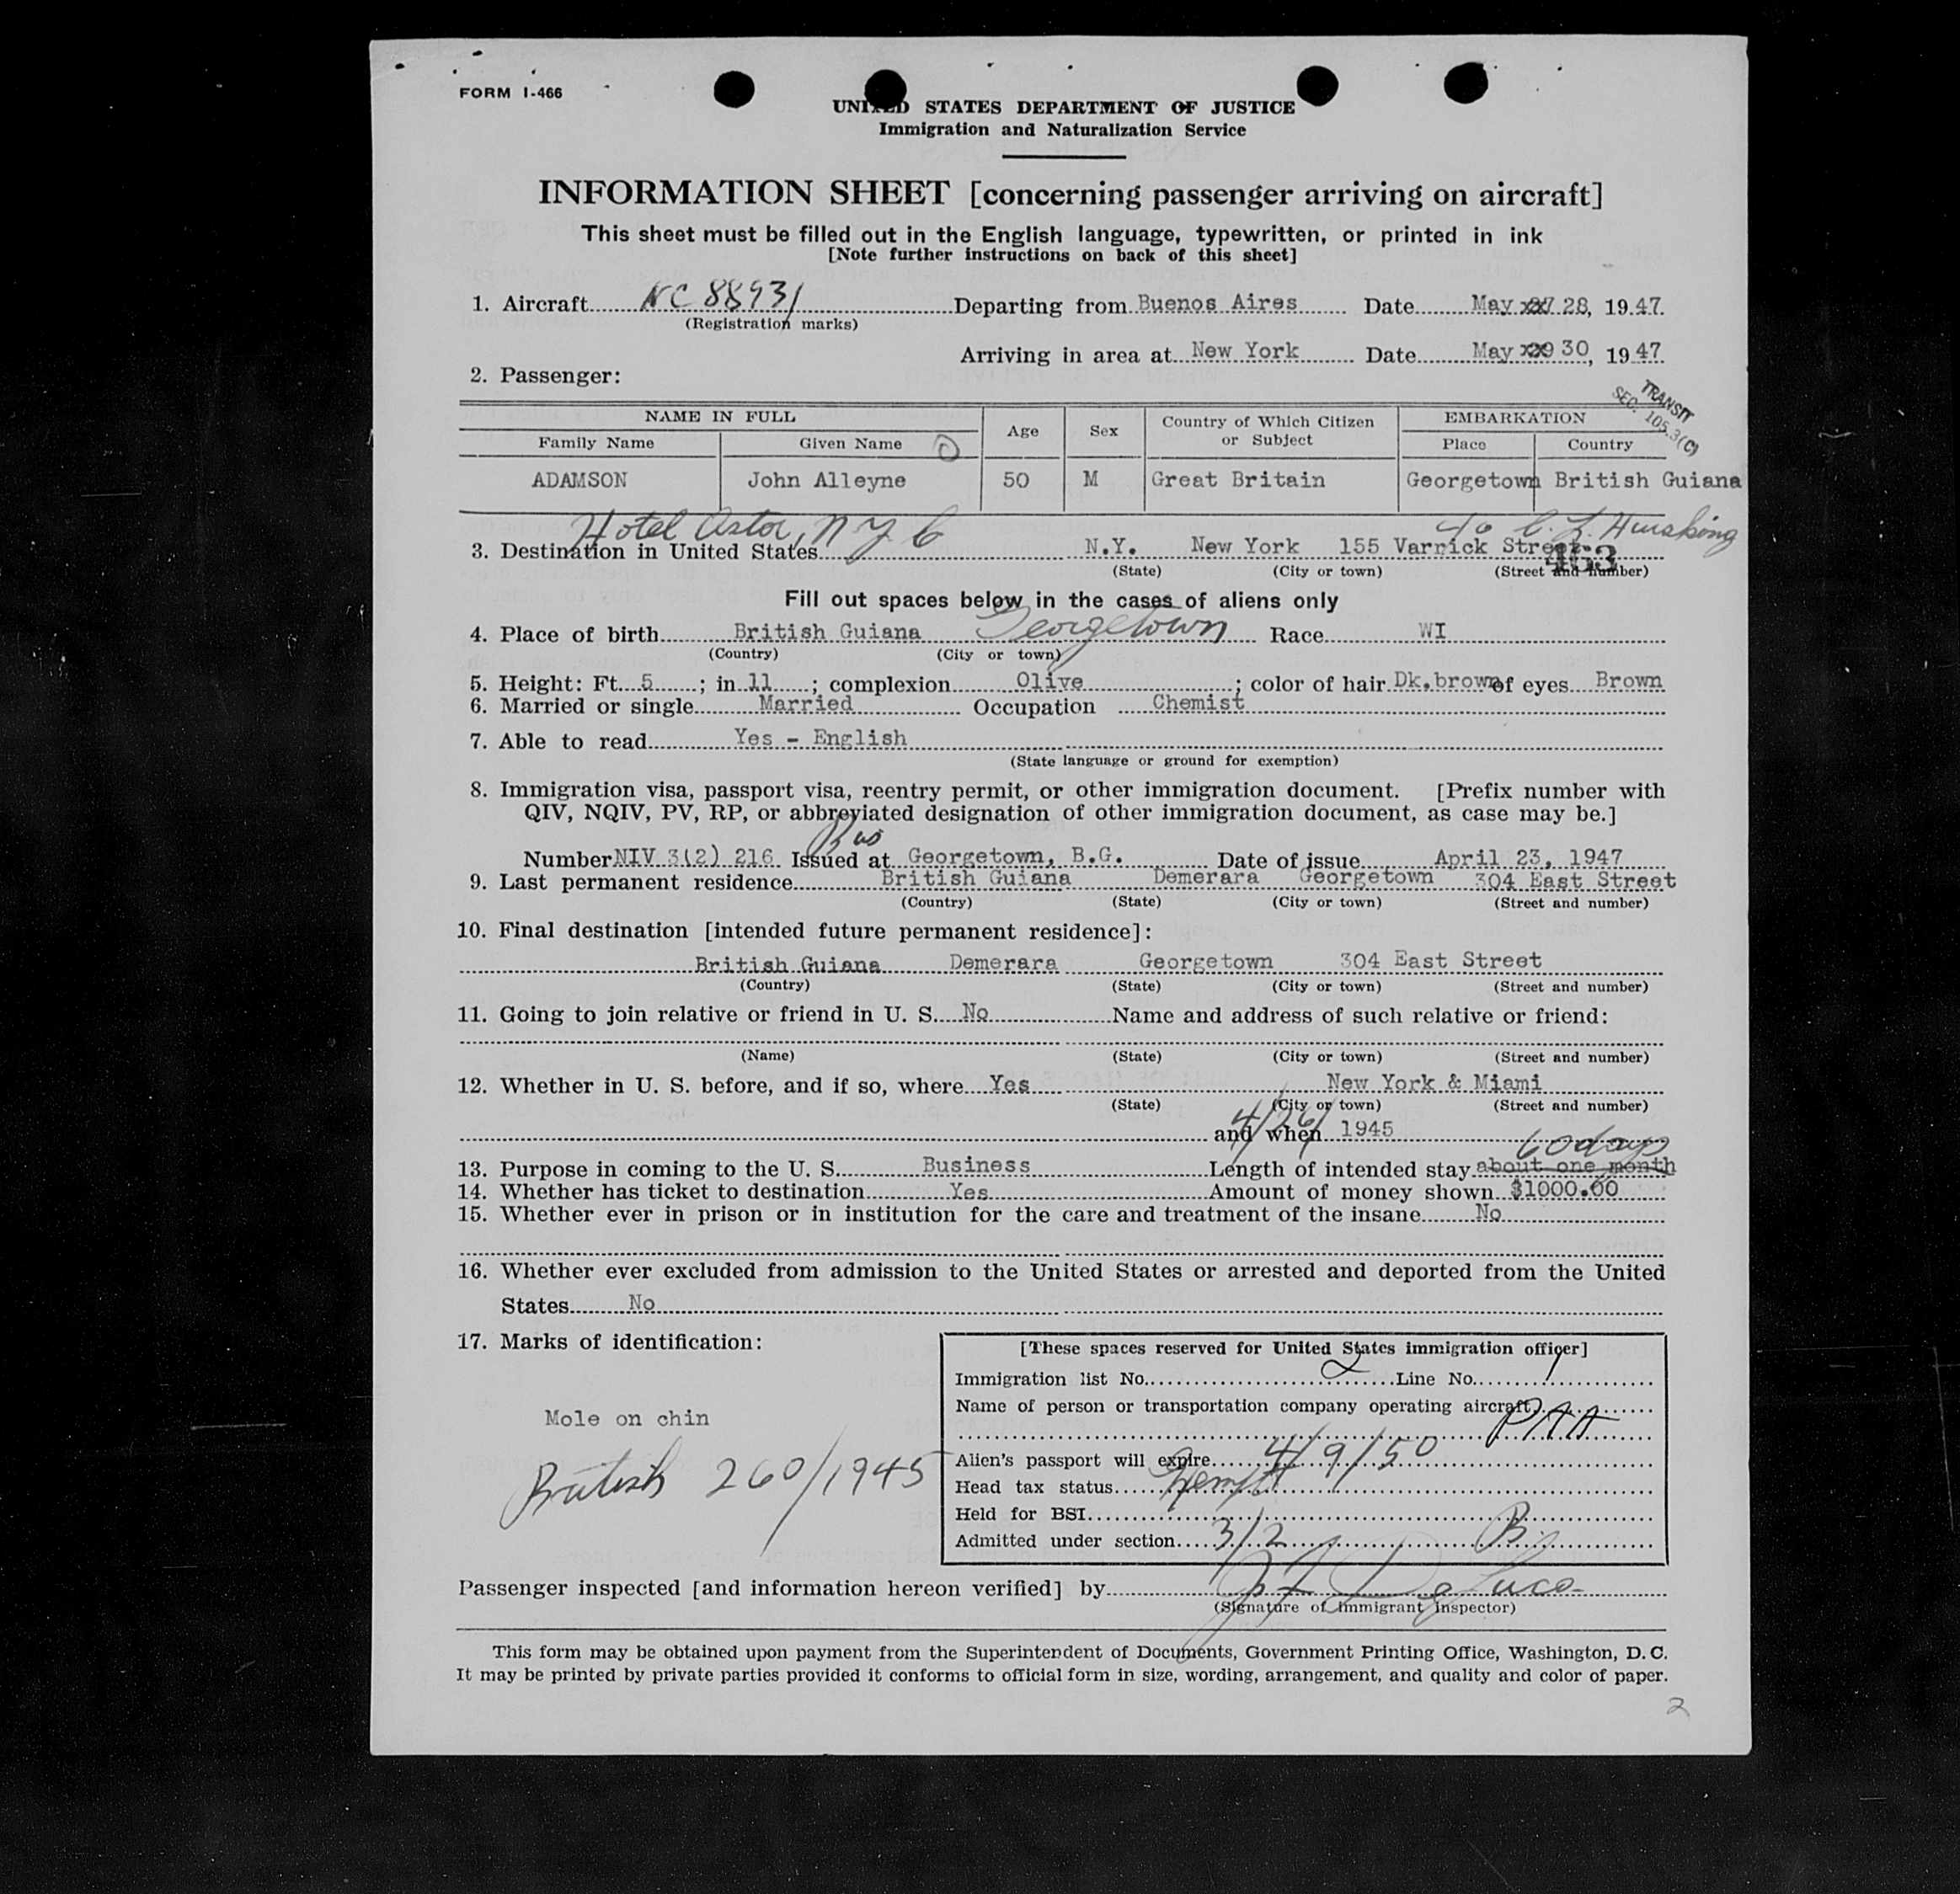 FORM I-466
UNITED STATES DEPARTMENT OF JUSTICE
Immigration and Naturalization Service
INFORMATION SHEET [concerning passenger arriving on aircraft]
This sheet must be filled out in the English language, typewritten, or printed in ink
[Note further instructions on back of this sheet]
1. Aircraft NC 88931 Departing from Buenos Aires Date May xx 28, 19 47.
(Registration marks)
Arriving in area at New York Date May xx 30, 19 47
2. Passenger:
TRANSIT
SEC. 105.3(C)
NAME IN FULL Age Sex Country of Which Citizen or Subject EMBARKATION
Family Name Given Name Place Country
ADAMSON John Alleyne 50 M Great Britain Georgetown British Guiana
Hotel Astor, N Y C c/o C. L.
3. Destination in United States N.Y. New York 155 Varrick Street
463
(State) (City or town) (Street and number)
Fill out spaces below in the cases of aliens only
4. Place of birth British Guiana Georgetown Race WI
(Country) (City or town)
5. Height: Ft. 5 ; in 11 ; complexion Olive ; color of hair Dk.brown of eyes Brown
6. Married or single Married Occupation Chemist
7. Able to read Yes - English
(State language or ground for exemption)
8. Immigration visa, passport visa, reentry permit, or other immigration document. [Prefix number with
QIV, NQIV, PV, RP, or abbreviated designation of other immigration document, as case may be.]
Bus
Number NIV 3(2) 216 Issued at Georgetown, B.G. Date of issue April 23, 1947
9. Last permanent residence British Guiana Demerara Georgetown 304 East Street
(Country) (State) (City or town) (Street and number)
10. Final destination [intended future permanent residence]:
British Guiana Demerara Georgetown 304 East Street
(Country) (State) (City or town) (Street and number)
11. Going to join relative or friend in U. S. No Name and address of such relative or friend:
(Name) (State) (City or town) (Street and number)
12. Whether in U. S. before, and if so, where Yes New York & Miami
(State) (City or town) (Street and number)
4/26/
and when 1945
60 days
13. Purpose in coming to the U. S. Business Length of intended stay about one month
14. Whether has ticket to destination Yes Amount of money shown $1000.00
15. Whether ever in prison or in institution for the care and treatment of the insane No
16. Whether ever excluded from admission to the United States or arrested and deported from the United
States No
17. Marks of identification:
Mole on chin
British 260/1945
[These spaces reserved for United States immigration officer]
Immigration list No. 2 Line No. 1
Name of person or transportation company operating aircraft
PAA
Alien's passport will expire 4/9/50
Head tax status Exempt
Held for BSI
Admitted under section 3/2 B
Passenger inspected [and information hereon verified] by
(Signature of Immigrant Inspector)
This form may be obtained upon payment from the Superintendent of Documents, Government Printing Office, Washington, D. C.
It may be printed by private parties provided it conforms to official form in size, wording, arrangement, and quality and color of paper.
2